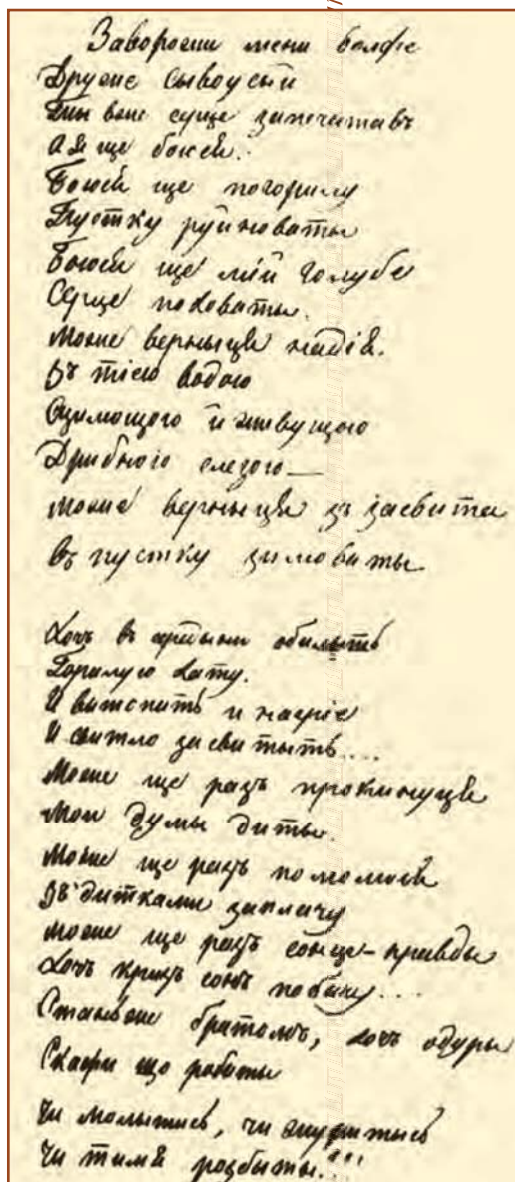 Заворожи мени волхве
Друже сывоусый
Ты вже серце запечатавъ
А Я ще боюся.
Боюся ще погорилу
Пустку руйноваты
Боюся ще мій голубе
Серце поховаты.
Може верныця надія.
Зъ тією водою
Сцилющою й живущою
Дрибною слезою—
Може верныця зъ засвита
въ пустку зимоваты

Хочь в средыни обилыть
Горилую хату.
И вытопить и нагріе
И свитло засвитыть....
Може ще разъ прокинуця
Мои думы диты.
Може ще разъ помолюся
Зъ дитками заплачу
може ще разъ сонце-правды
Хочь кризь сонъ побачу....
Стань же братомъ, хочь одуры
Скажи що робыты

Чи молытысь, чи журытысь
Чи тимя розбыты!!!